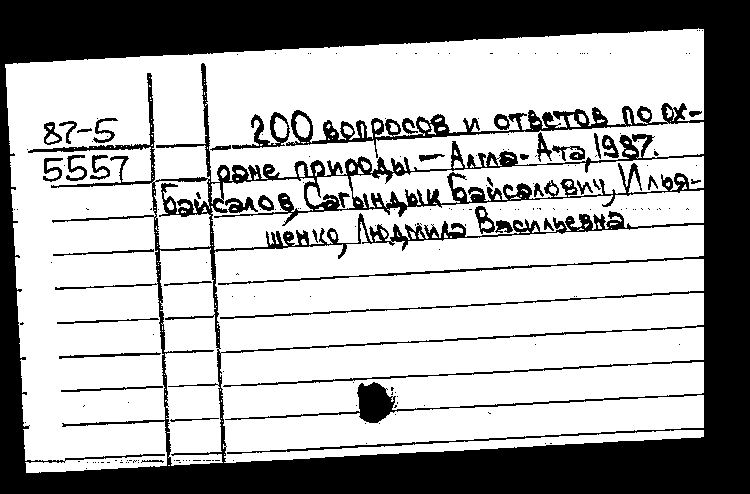 87-5 200 вопросов и ответов по ох-
5557 ране природы. — Алма-Ата, 1987.
Байсалов, Сагындык Байсалович, Илья-
шенко, Людмила Васильевна.